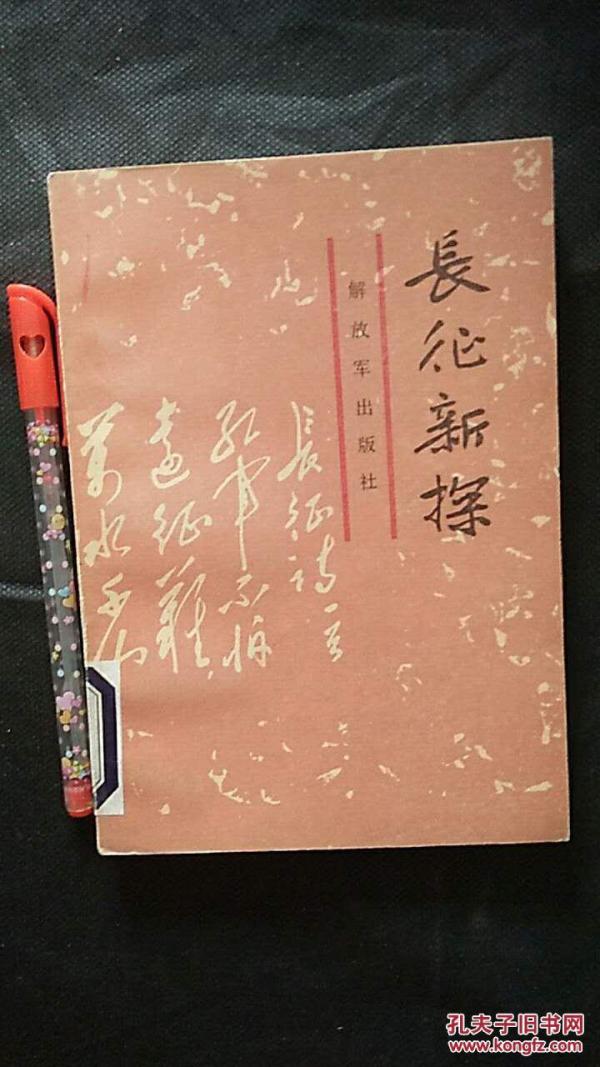 長征新探
解放军出版社
長征诗一首
红军不怕
遠征難
萬水千山
孔夫子旧书网
www.kongfz.com